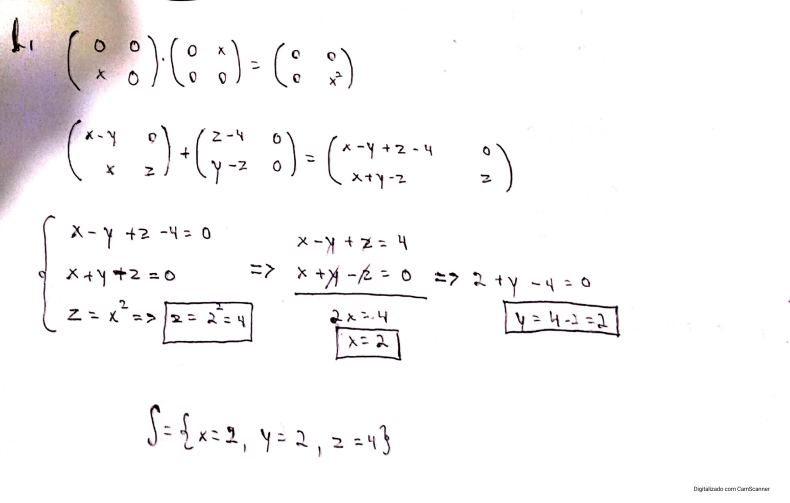 1.
( 0 0 ; x 0 ) · ( 0 x ; 0 0 ) = ( 0 0 ; 0 x² )
( x-y 0 ; x z ) + ( z-4 0 ; y-z 0 ) = ( x-y+z-4 0 ; x+y-z z )
x-y+z-4=0
x+y+z=0 =>
z=x² => z=2²=4
x-y+z=4
x+y-z=0 => 2+y-4=0
2x=4
x=2
y=4-2=2
S={x=2, y=2, z=4}
Digitalizado com CamScanner